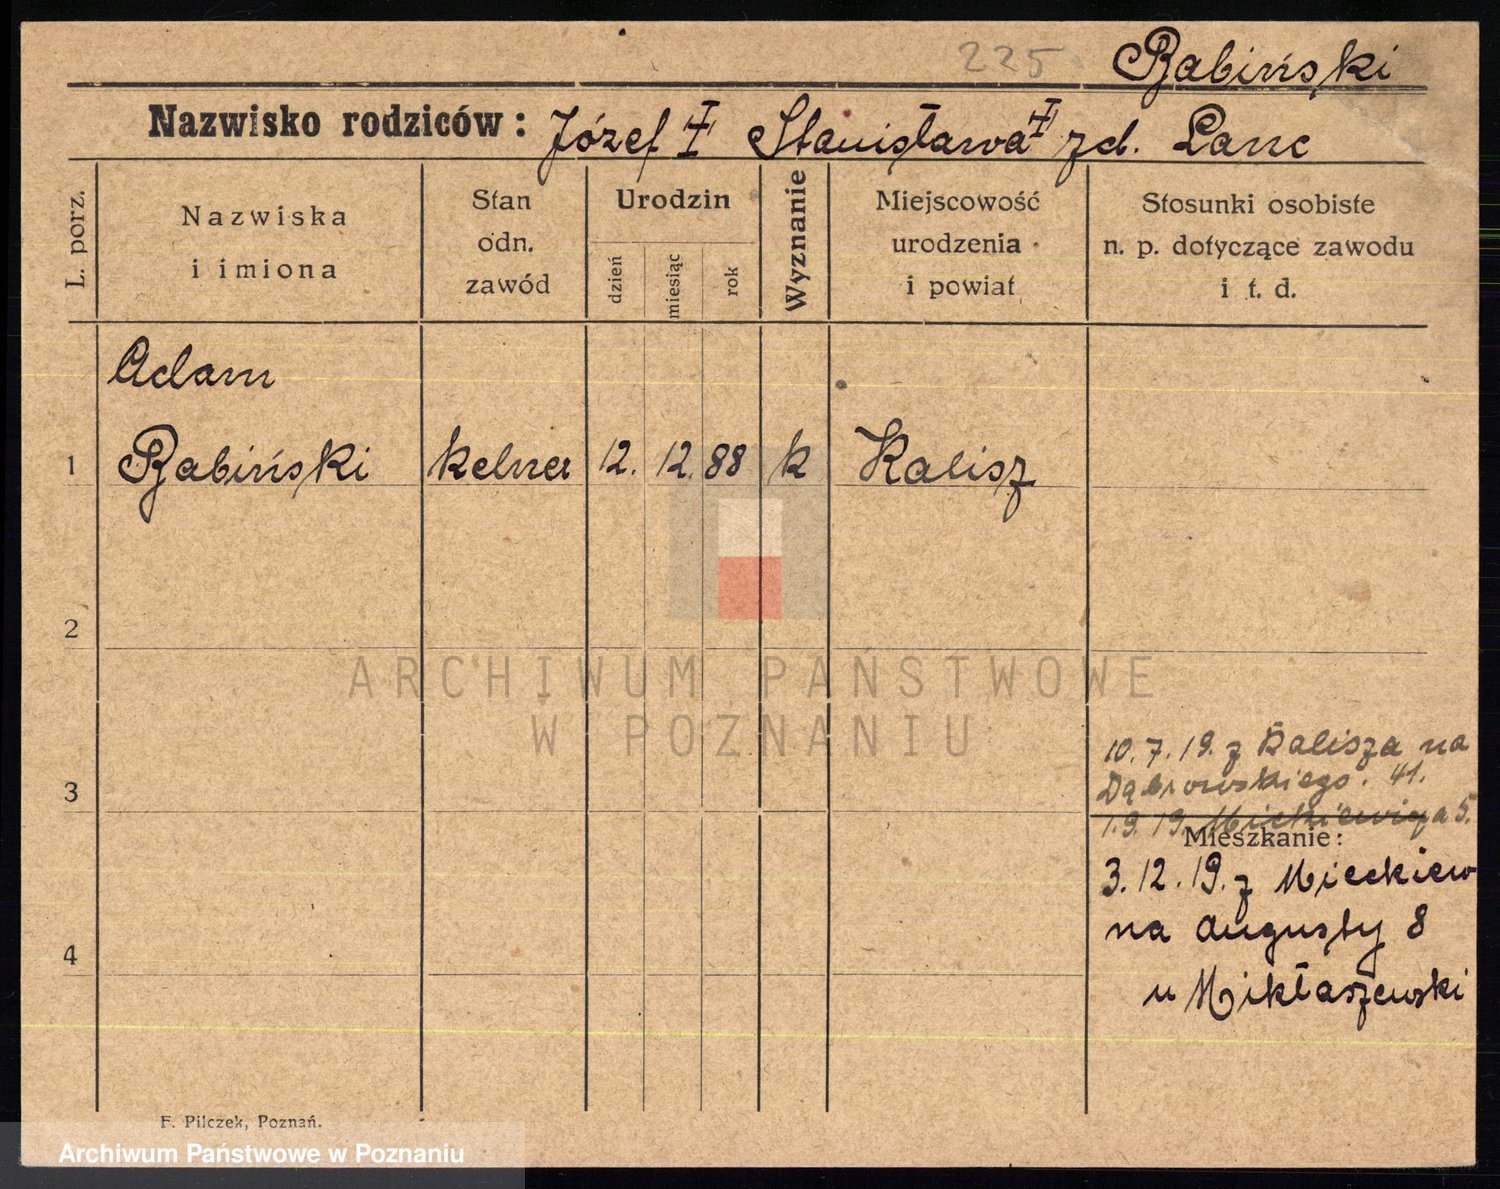 225. Babiński
Nazwisko rodziców: Józef Stanisława zd. Lanc
L. porz.
Nazwiska
i imiona
Stan
odn.
zawód
Urodzin
dzień
miesiąc
rok
Wyznanie
Miejscowość
urodzenia
i powiat
Stosunki osobiste
n. p. dotyczące zawodu
i t. d.
Adam
1 Babiński kelner 12. 12. 88 k Kalisz
2
ARCHIWUM PAŃSTWOWE
W POZNANIU
10.7.19. z Kalisza na
3 Dąbrowskiego. 41.
1.9.19. Mickiewicza 5.
Mieszkanie:
3.12.19. z Mickiew
na Augusty 8
4
u Mikłaszewski
F. Pilczek, Poznań.
Archiwum Państwowe w Poznaniu